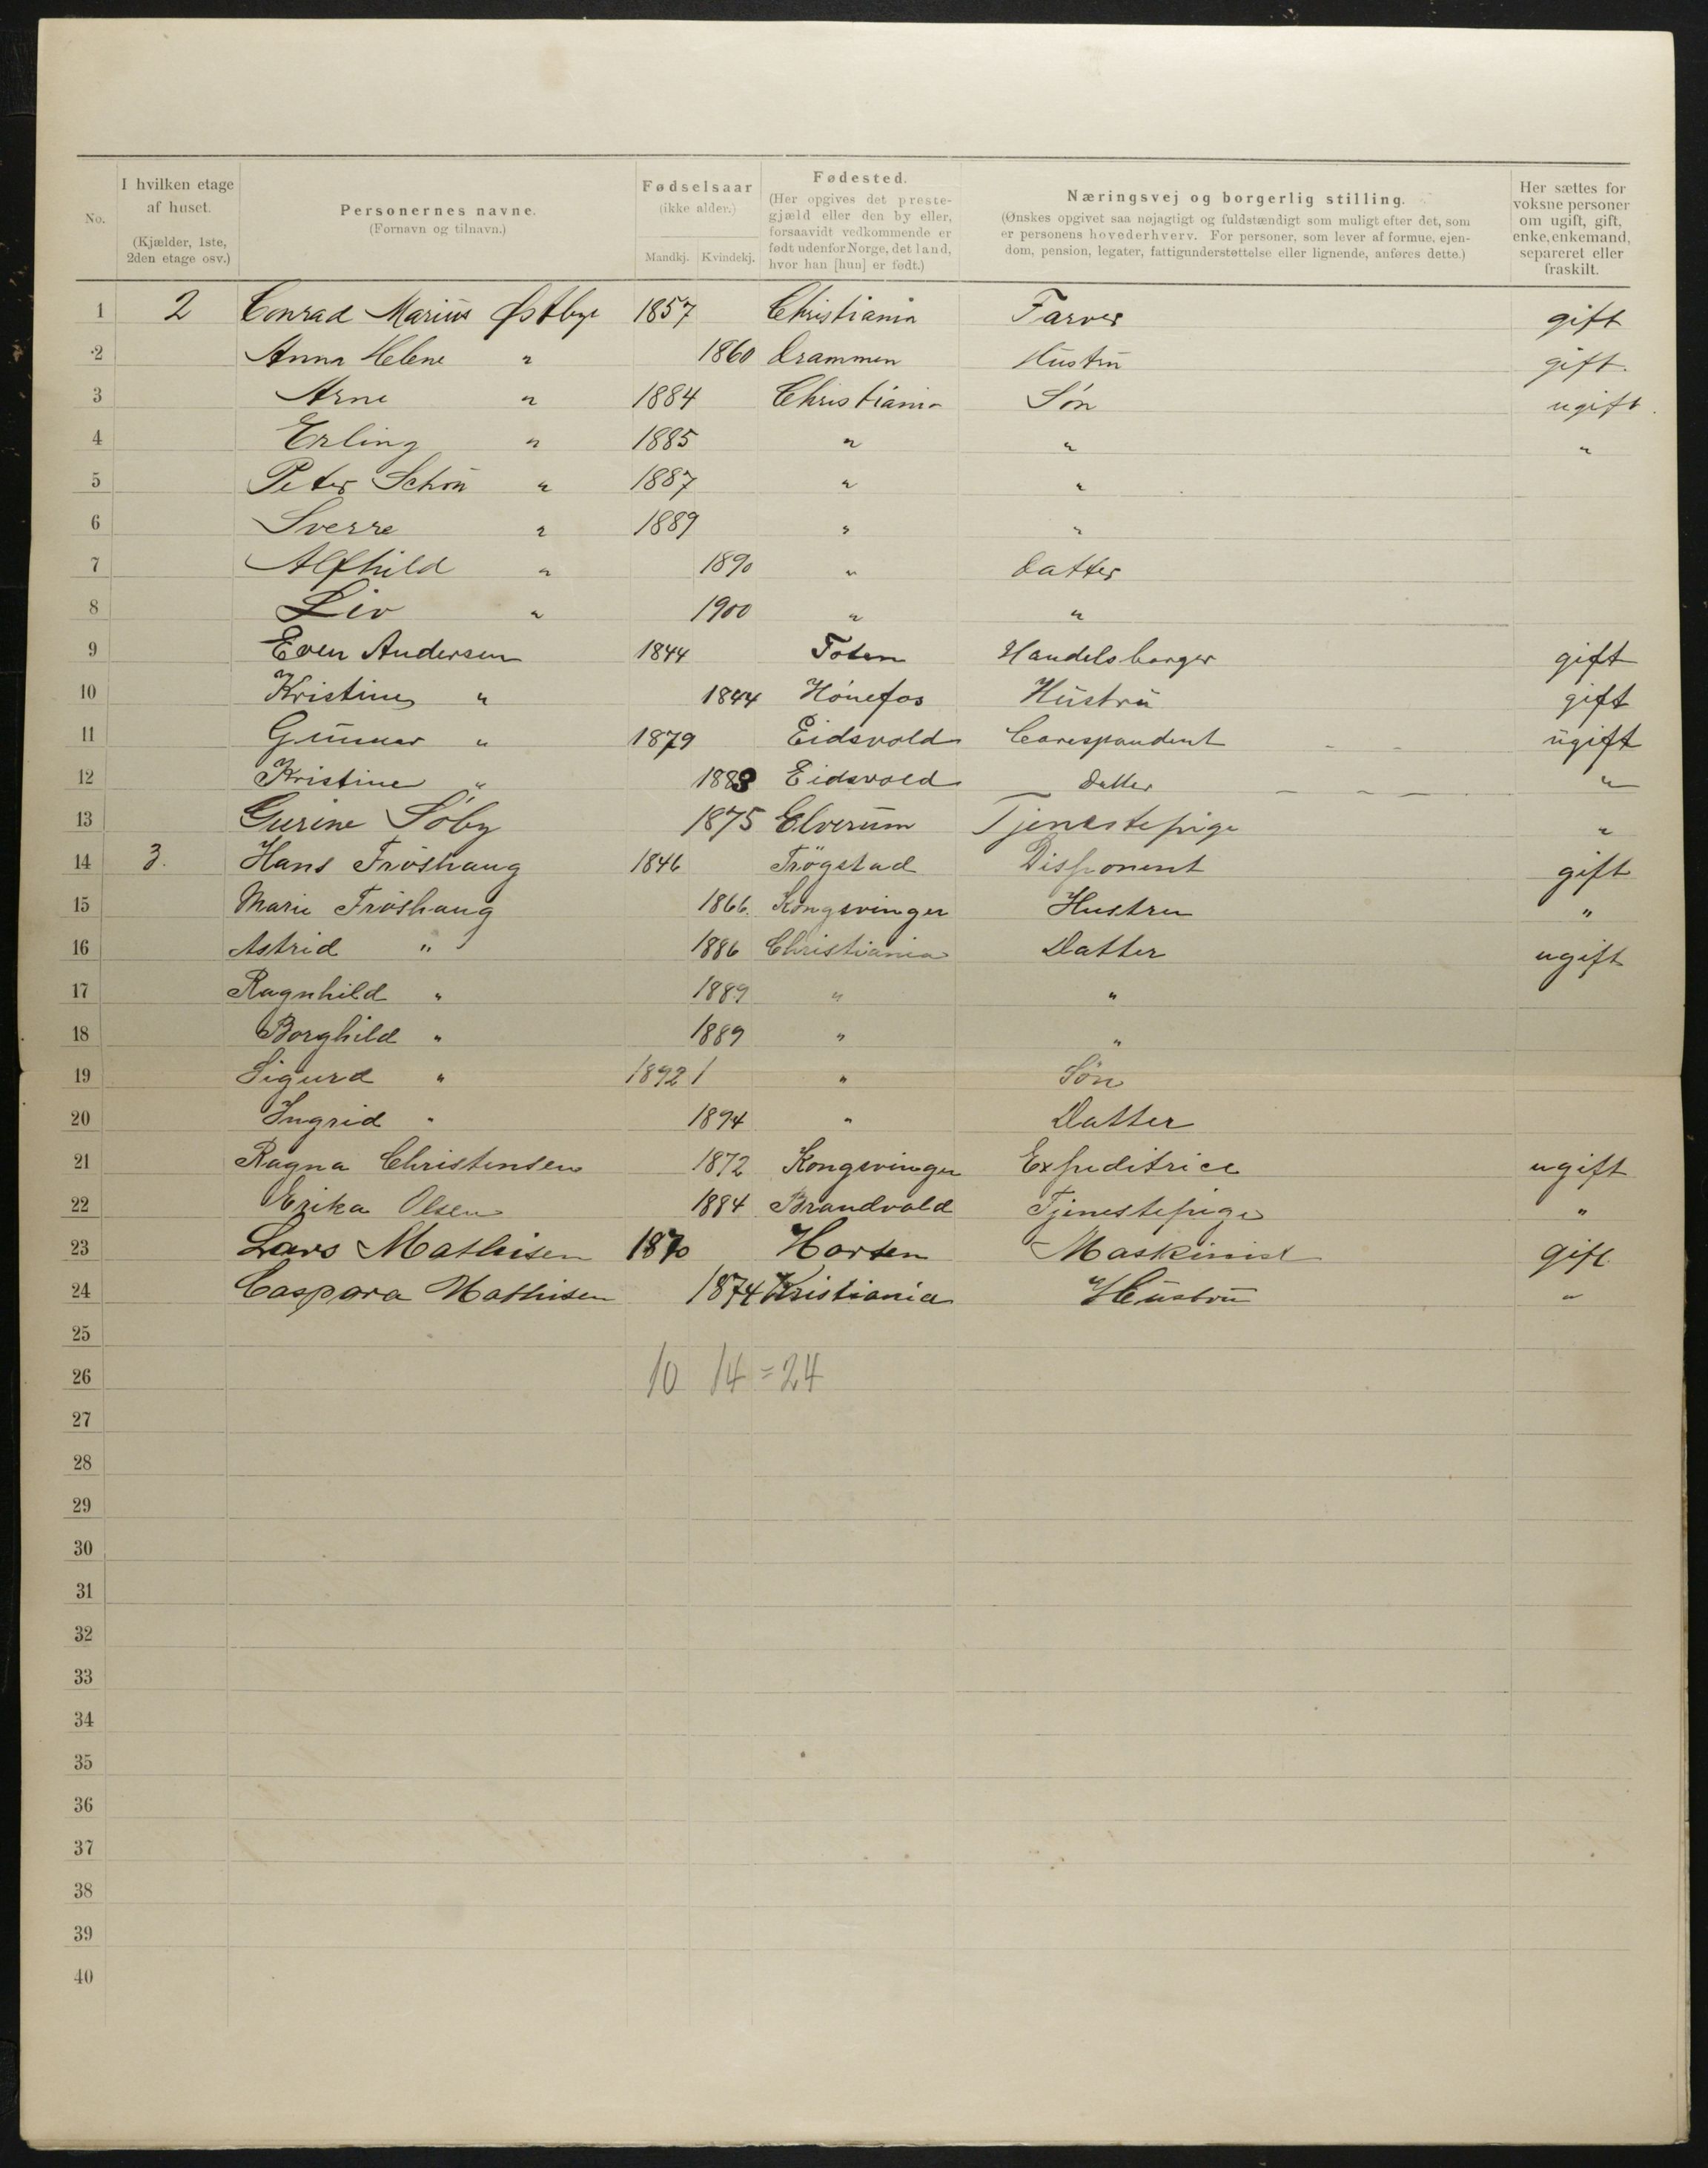 No. | I hvilken etage af huset. (Kjælder, 1ste, 2den etage osv.) | Personernes navne. (Fornavn og tilnavn.) | Fødselsaar (ikke alder.) Mandkj. Kvindekj. | Fødested. (Her opgives det prestegjæld eller den by eller, forsaavidt vedkommende er født udenfor Norge, det land, hvor han [hun] er født.) | Næringsvej og borgerlig stilling. (Ønskes opgivet saa nøjagtigt og fuldstændigt som muligt efter det, som er personens hovederhverv. For personer, som lever af formue, ejendom, pension, legater, fattigunderstøttelse eller lignende, anføres dette.) | Her sættes for voksne personer om ugift, gift, enke, enkemand, separeret eller fraskilt.
1 2 Conrad Marius Østbye 1857 Christiania Farver gift
2 Anna Helene " 1860 Drammen Hustru gift.
3 Arne " 1884 Christiania Søn ugift.
4 Erling " 1885 " " "
5 Peter Schøn " 1887 " "
6 Sverre " 1889 " "
7 Alfhild " 1890 " Datter
8 Liv " 1900 " "
9 Even Andersen 1844 Toten Handelsborger gift
10 Kristine " 1844 Hónefos Hustru gift
11 Gunnar " 1879 Eidsvold Corespondent - - ugift
12 Kristine " 1883 Eidsvold Datter - - - "
13 Gurine Söby 1875 Elverum Tjenestepige "
14 3. Hans Fröshaug 1846 Trögstad Disponent gift
15 Marie Fröshaug 1866. Kongsvinger Hustru "
16 Astrid " 1886 Christiania Datter ugift
17 Ragnhild " 1889 " "
18 Borghild " 1889 " "
19 Sigurd " 1892 / " Sön
20 Ingrid " 1894 " Datter
21 Ragna Christensen 1872 Kongsvinger Expeditrice ugift
22 Erika Olsen 1884 Brandvold Tjenestepige "
23 Lars Mathisen 1870 Horten Maskinist gift
24 Caspara Mathisen 1874 Kristiania Hustru "
25
26 10 14 = 24
27
28
29
30
31
32
33
34
35
36
37
38
39
40